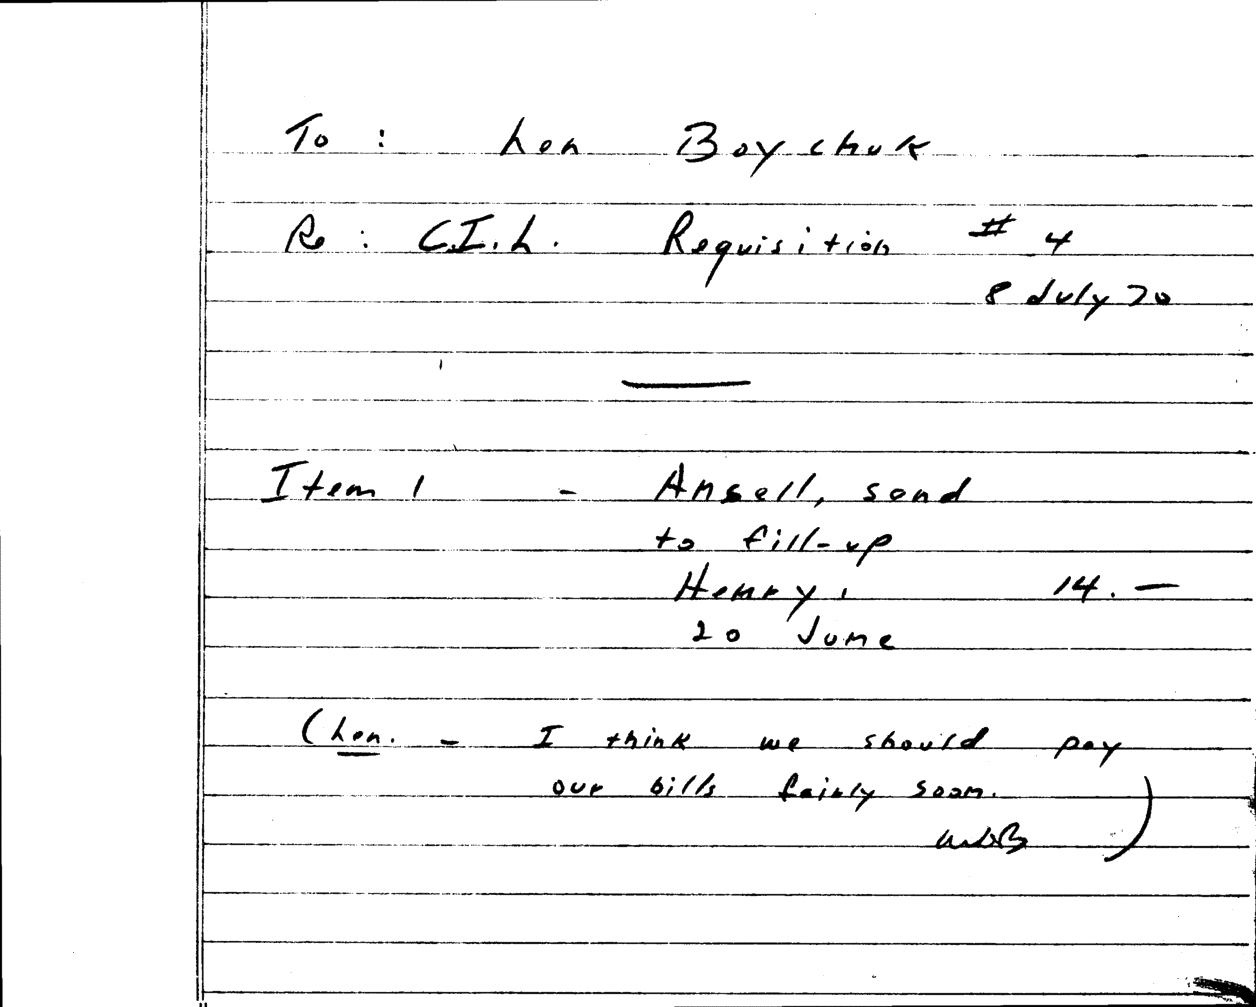 To : Len Boychuk
Re : C.I.L. Requisition # 4
8 July 70
Item 1 - Ansell, send
to fill-up
Henry, 14. —
20 June
(Len. - I think we should pay
our bills fairly soon.
)